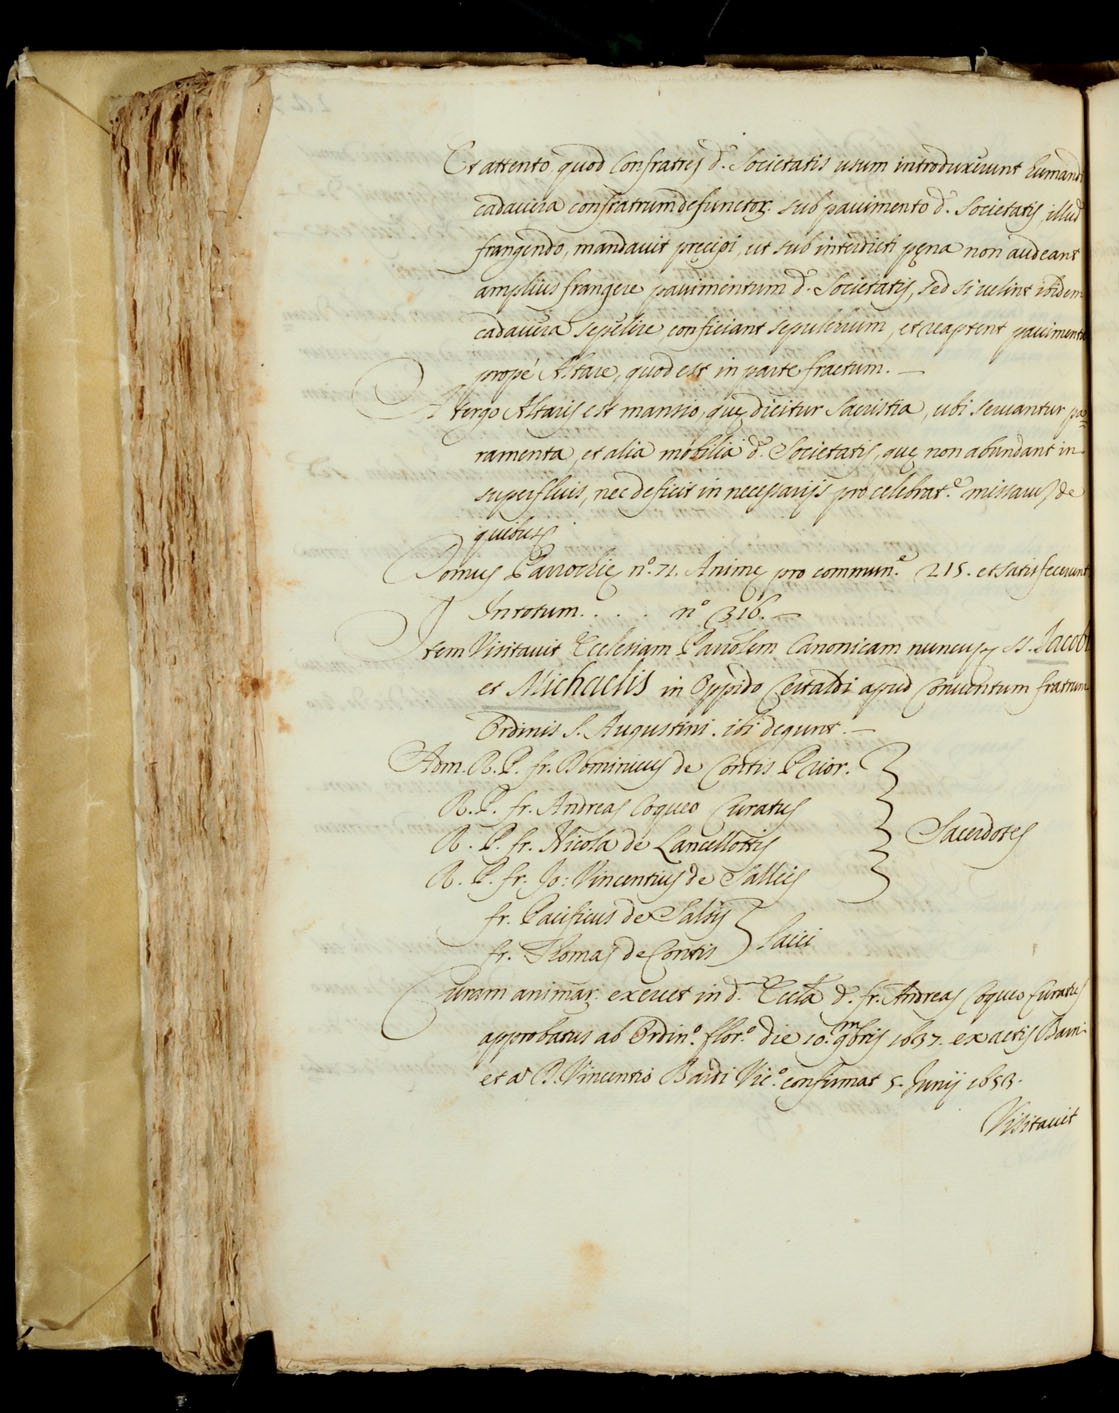 Et attento quod Confratres d.ᵉ Societatis usum introduxerunt humandi
cadauera confratrum defunctor: sub pauimento d.ᵉ Societatis, illud
frangendo, mandauit pręcipi, ut sub interdicti pęna non audeant
amplius frangere pauimentum d.ᵉ Societatis, sed si uelint ibidem
cadauera sepelire conficiant sepulcrum, et reaptent pauimentū
propè Altare, quod est in parte fractum.—
A tergo Altaris est mansio, quę dicitur Sacristia, ubi seruantur pa=
ramenta, et alia mobilia d.ᵉ Societatis, quę non abundant in
superfluis, nec deficit in necessarijs pro celebrat.ᵉ missarū, de
quibus
Domus Parrochię n.º 71. Animę pro commun.ᵉ 215. et satisfecerunt
In totum. . . . n.º 316.—
Item Visitauit Ecclesiam Parrõlem Canonicam nuncup. SS. Jacobi
et Michaelis in Oppido Certaldi apud Conuentum fratrum
Ordinis S. Augustini. ibi degunt.—
Adm. R. P. fr. Dominicus de Contis Prior.
R. P. fr. Andreas Coqueo Curatus
R. P. fr. Nicola de Lancellottis
R. P. fr. Jo: Vincentius de Salleis
Sacerdotes
fr. Pacificus de Saluis
fr. Thomas de Contis
Laici
Curam animar: exercet in d.ᵃ Eccľa d.ˢ fr. Andreas Coqueo Curatus
approbatus ab Ordin.º flor.º die 10. 9mbris 1637. ex actis Barni
et à P. Vincentio Bardi Vic.º confirmat 5. Junij 1653.
Visitauit